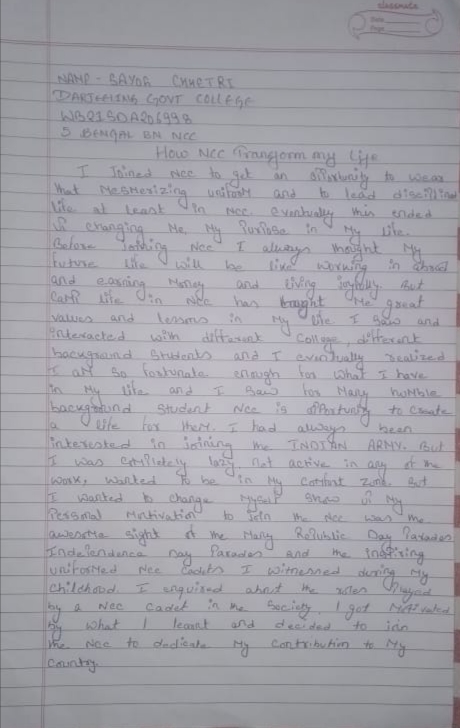 classmate
Date
Page
NAME - SAYOG CHHETRI
DARJEELING GOVT COLLEGE
WB21SDA206998
5 BENGAL BN NCC
How NCC Transform my life
I Joined NCC to get an opportunity to wear
that Mesmerizing uniform and to lead discipline
life at least in NCC. eventually this ended
up changing Me, My Purpose in My life.
Before Joining NCC I always thought My
future life will be like working in abroad
and earning Money and living joyfully. But
Camp life in NCC has taught Me great
values and lessons in My life I saw and
interacted with different College, different
background students and I eventually realized
I am so fortunate enough for what I have
in My life and I saw for Many humble
background student NCC is opportunity to create
a life for them. I had always been
interested in joining the INDIAN ARMY. But
I was completely lazy, not active in any of the
work, wanted to be in My comfort zone. But
I wanted to change Myself show up My
Personal Motivation to Join the NCC was the
awesome sight of the Many Republic Day Parades
Independence Day Parades and the inspiring
uniformed NCC cadets I witnessed during My
childhood. I enquired about the roles played
by a NCC cadet in the society. I got Motivated
by what I learnt and decided to join
the NCC to dedicate My contribution to My
Country.